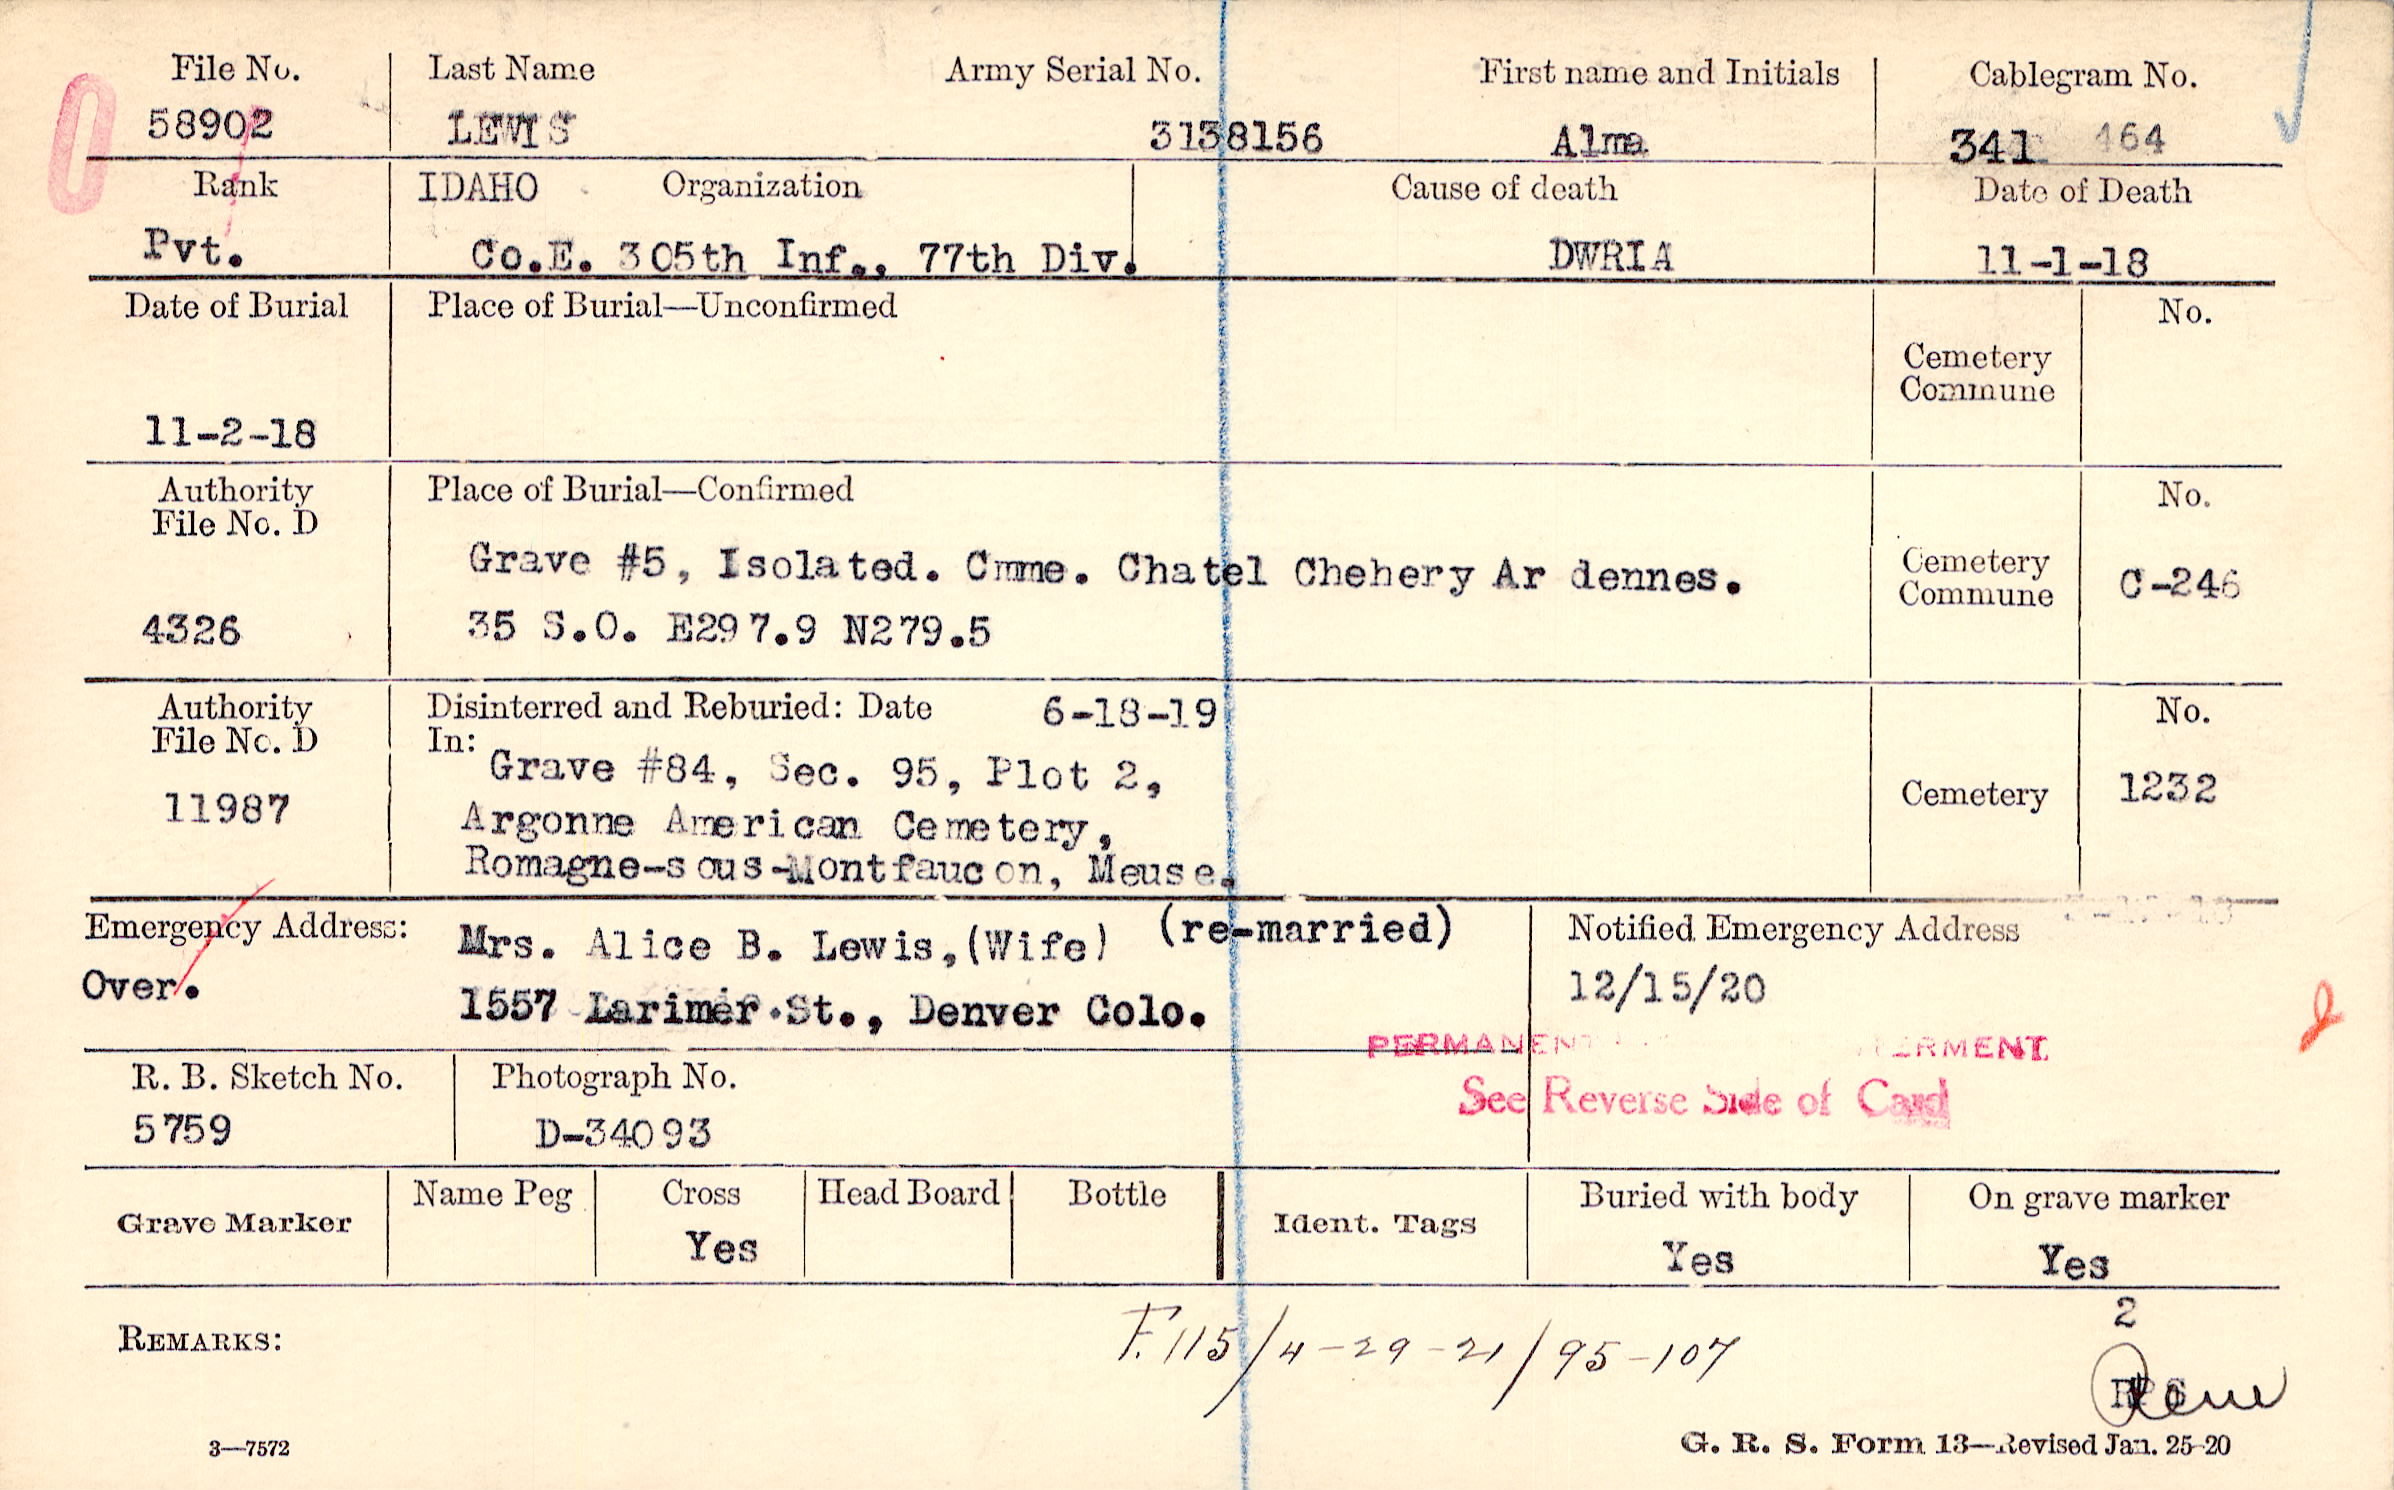 File No. Last Name Army Serial No. First name and Initials Cablegram No.
58902 LEWIS 3138156 Alma 341 464
Rank IDAHO Organization Cause of death Date of Death
Pvt. Co.E. 305th Inf., 77th Div. DWRIA 11-1-18
Date of Burial Place of Burial—Unconfirmed No.
Cemetery
Commune
11-2-18
Authority Place of Burial—Confirmed No.
File No. D
Grave #5, Isolated. Cmme. Chatel Chehery Ar dennes. Cemetery
Commune C-246
4326 35 S.O. E297.9 N279.5
Authority Disinterred and Reburied: Date 6-18-19 No.
File No. D In:
Grave #84, Sec. 95, Plot 2,
11987 Cemetery 1232
Argonne American Cemetery,
Romagne-sous-Montfaucon, Meuse.
Emergency Address: Mrs. Alice B. Lewis,(Wife) (re-married) Notified Emergency Address
Over. 1557 Larimer St., Denver Colo. 12/15/20
PERMANENT
See Reverse Side of Card
R. B. Sketch No. Photograph No.
5759 D-34093
Grave Marker Name Peg Cross Head Board Bottle Ident. Tags Buried with body On grave marker
Yes Yes Yes
2
REMARKS: F.115/4-29-21/95-107
3—7572 G. R. S. Form 13—Revised Jan. 25-20